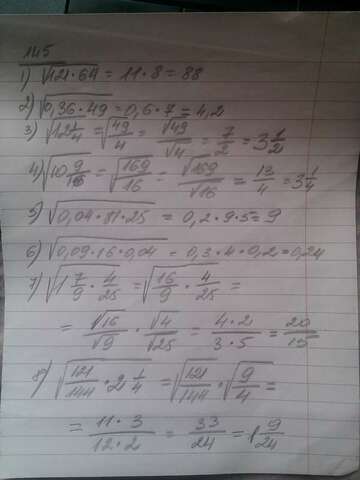 145
1) √121·64 = 11·8 = 88
2) √0,36·49 = 0,6·7 = 4,2
3) √12 1/4 = √49/4 = √49/√4 = 7/2 = 3 1/2
4) √10 9/16 = √169/16 = √169/√16 = 13/4 = 3 1/4
5) √0,04·81·25 = 0,2·9·5 = 9
6) √0,09·16·0,04 = 0,3·4·0,2 = 0,24
7) √1 7/9 · 4/25 = √16/9 · 4/25 =
= √16/√9 · √4/√25 = 4·2/3·5 = 20/15
8) √121/144 · 2 1/4 = √121/144 · √9/4 =
= 11·3/12·2 = 33/24 = 1 9/24